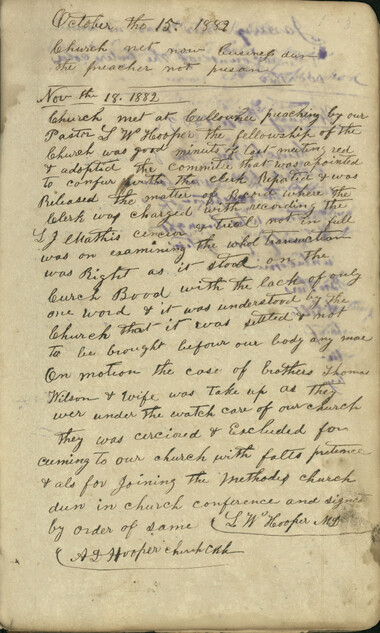 October the 15. 1882
Church met now buisness dun
the preacher not preasent
Nov the 18. 1882
Church met at Cullowhee preaching by our
Pastor L W Hooper the fellowship of the
Church was good minuts of last meeting red
& adopted the Committe that was apointed
to confur with the Clerk Repoted & was
Released the matter of Record where the
Clerk was charged with recording the
L J Mathis cencior critical not in full
was on examining the whol transation
was Right as it stood on the
Curch Bood with the lack of only
one word & it was understood by the
Church that it was settled & not
to be brought befour our body any more
On motion the case of brothers Thomas
Wilson & Wife was take up as they
wer under the watch care of our church
they was cercioud & Excluded for
cuming to our church with falts pretence
& als for Joining the Methodes church
dun in church conference and signed
by order of same L W Hooper Md
A D Hooper church Clk